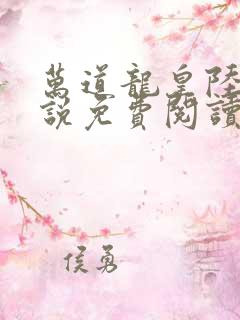 萬道龍皇陸
說免費閱讀
侯勇